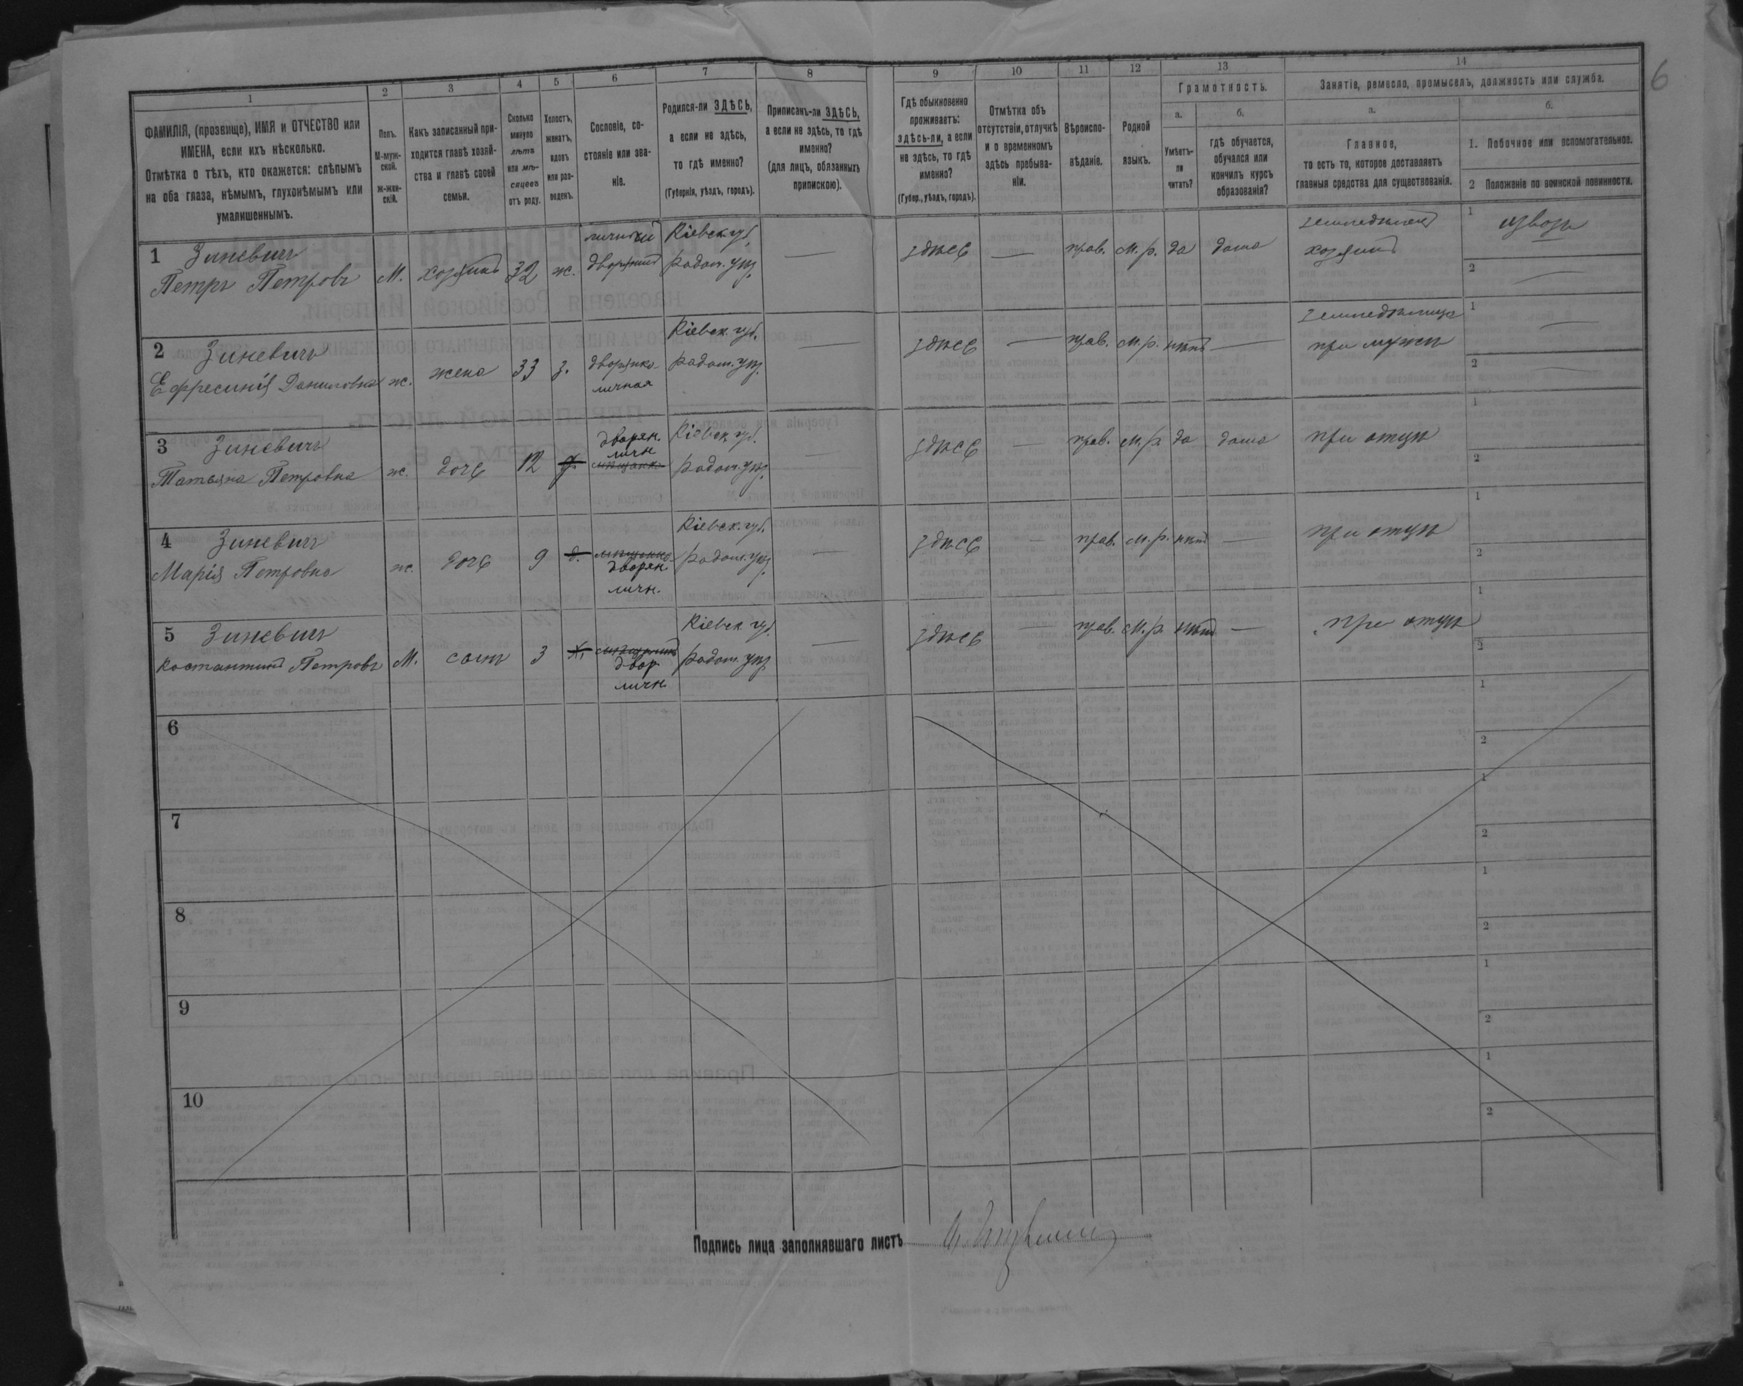 6
1 2 3 4 5 6 7 8 9 10 11 12 13 14
ФАМИЛІЯ, (прозвище), ИМЯ и ОТЧЕСТВО или
ИМЕНА, если ихъ нѣсколько.
Отмѣтка о тѣхъ, кто окажется: слѣпымъ
на оба глаза, нѣмымъ, глухонѣмымъ или
умалишеннымъ.
Полъ.
М-муж-
ской.
Ж-жен-
скій.
Какъ записанный при-
ходится главѣ хозяй-
ства и главѣ своей
семьи.
Сколько
минуло
лѣтъ
или мѣ-
сяцевъ
отъ роду.
Холостъ,
женатъ,
вдовъ
или раз-
веденъ.
Сословіе, со-
стояніе или зва-
ніе.
Родился-ли ЗДѢСЬ,
а если не здѣсь,
то гдѣ именно?
(Губернія, уѣздъ, городъ).
Приписанъ-ли ЗДѢСЬ,
а если не здѣсь, то гдѣ
именно?
(для лицъ, обязанныхъ
припискою).
Гдѣ обыкновенно
проживаетъ:
ЗДѢСЬ-ли, а если
не здѣсь, то гдѣ
именно?
(Губер., уѣздъ, городъ).
Отмѣтка объ
отсутствіи, отлучкѣ
и о временномъ
здѣсь пребыва-
ніи.
Вѣроиспо-
вѣданіе.
Родной
языкъ.
Грамотность.
а.
Умѣетъ-
ли
читать?
б.
гдѣ обучается,
обучался или
кончилъ курсъ
образованія?
Занятіе, ремесло, промыселъ, должность или служба.
а.
Главное,
то есть то, которое доставляетъ
главныя средства для существованія.
б.
1. Побочное или вспомогательное.
2 Положеніе по воинской повинности.
1 Зиневичъ
Петръ Петровъ
М.
хозяинъ
32
ж.
личный
дворянинъ
Кіевск. губ.
Радом. уѣз.
—
здѣсь
—
прав.
м. р.
да
дома
земледѣлецъ
хозяинъ
1 извозъ
2 —
2 Зиневичъ
Ефросинія Даниловна
ж.
жена
33
з.
дворянка
личная
Кіевск. губ.
Радом. уѣз.
—
здѣсь
—
прав.
м. р.
нѣтъ
—
земледѣлица
при мужѣ
1 —
2 —
3 Зиневичъ
Татьяна Петровна
ж.
дочь
12
д.
дворян.
личн
мѣщанка
Кіевск. губ.
Радом. уѣз.
—
здѣсь
—
прав.
м. р.
да
дома
при отцѣ
1
2
4 Зиневичъ
Марія Петровна
ж.
дочь
9
д.
мѣщанка
дворян.
личн.
Кіевск. губ.
Радом. уѣз.
—
здѣсь
—
прав.
м. р.
нѣтъ
—
при отцѣ
1
2
5 Зиневичъ
Костантинъ Петровъ
М.
сынъ
3
х.
двор.
личн.
Кіевск. губ.
Радом. уѣз.
—
здѣсь
—
прав.
м. р.
нѣтъ
—
при отцѣ
1
2
6
1
2
7
1
2
8
1
2
9
1
2
10
1
2
Подпись лица заполнявшаго листъ